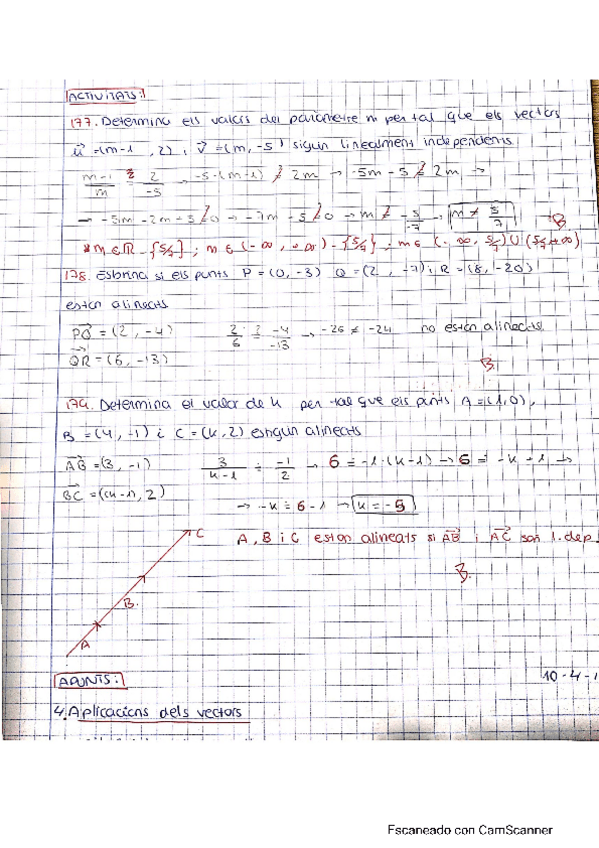 ACTIVITATS:
177. Determina els valors del paràmetre m per tal que els vectors
u = (m-1, 2) i v = (m, -5) siguin linealment independents
m-1/m ≠ 2/-5 → -5·(m-1) ≠ 2m → -5m - 5 ≠ 2m →
→ -5m - 2m - 5 ≠ 0 → -7m - 5 ≠ 0 → m ≠ 5/-7 → m ≠ 5/7 B
* m ∈ R - {5/7} ; m ∈ (-∞, +∞) - {5/7} ; m ∈ (-∞, 5/7) U (5/7, +∞)
178. Esbrina si els punts P = (0, -3) Q = (2, -7) i R = (8, -20)
estan alineats
PQ = (2, -4) 2/6 = -4/-13 → -26 ≠ -24 no estan alineats
QR = (6, -13) B.
179. Determina el valor de k per tal que els punts A = (1, 0),
B = (4, -1) i C = (k, 2) estiguin alineats
AB = (3, -1) 3/k-1 = -1/2 → 6 = -1·(k-1) → 6 = -k + 1 →
BC = (k-1, 2) → -k = 6 - 1 → k = -5
C A, B i C estan alineats si AB i AC son l. dep.
B. B.
A
APUNTS: 10-4-
4. Aplicacions dels vectors
Escaneado con CamScanner